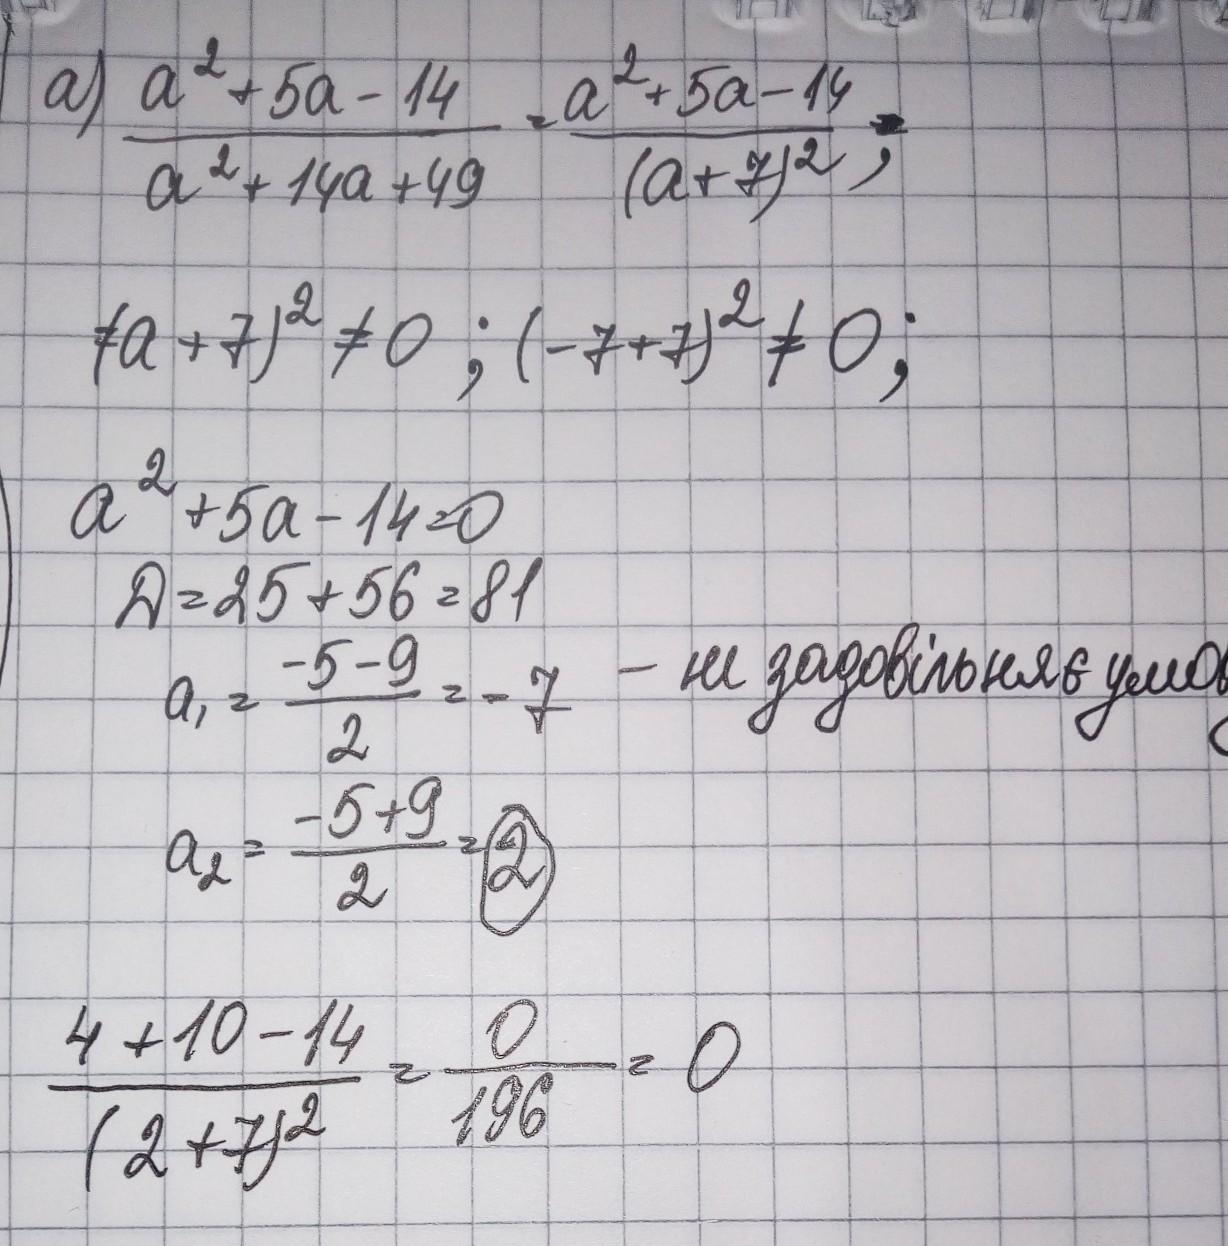 а) (a² + 5a - 14)/(a² + 14a + 49) = (a² + 5a - 14)/(a + 7)²;
(a + 7)² ≠ 0; (-7 + 7)² ≠ 0;
a² + 5a - 14 = 0
D = 25 + 56 = 81
a₁ = (-5 - 9)/2 = -7 - не задовільняє умов
a₂ = (-5 + 9)/2 = 2
(4 + 10 - 14)/(2 + 7)² = 0/196 = 0